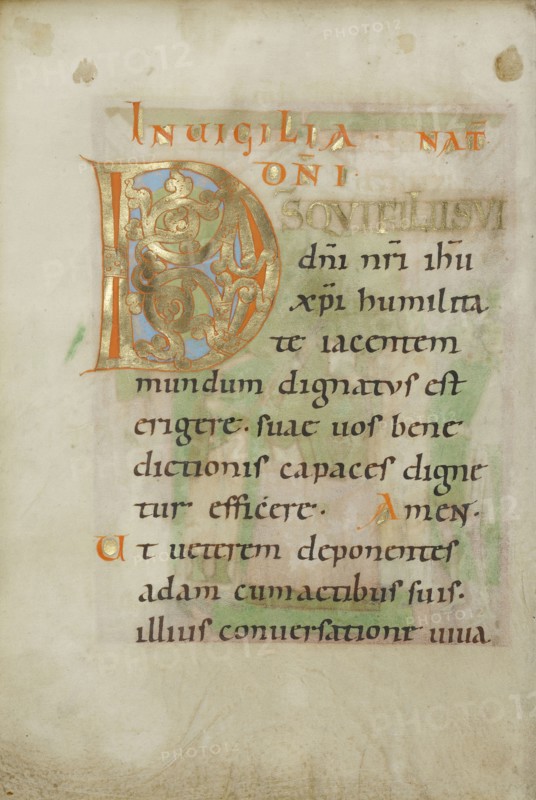 INUIGILIA · NAT̄
DOÑI
D S̄ QVI FILII SVI
dn̄i nr̄i ih̄u
xp̄i humilita
te iacentem
mundum dignatus est
erigere. suae uos bene
dictionis capaces digne
tur efficere. AmeN.
Ut ueterem deponentes
adam cum actibus suis.
illius conuersatione uiua